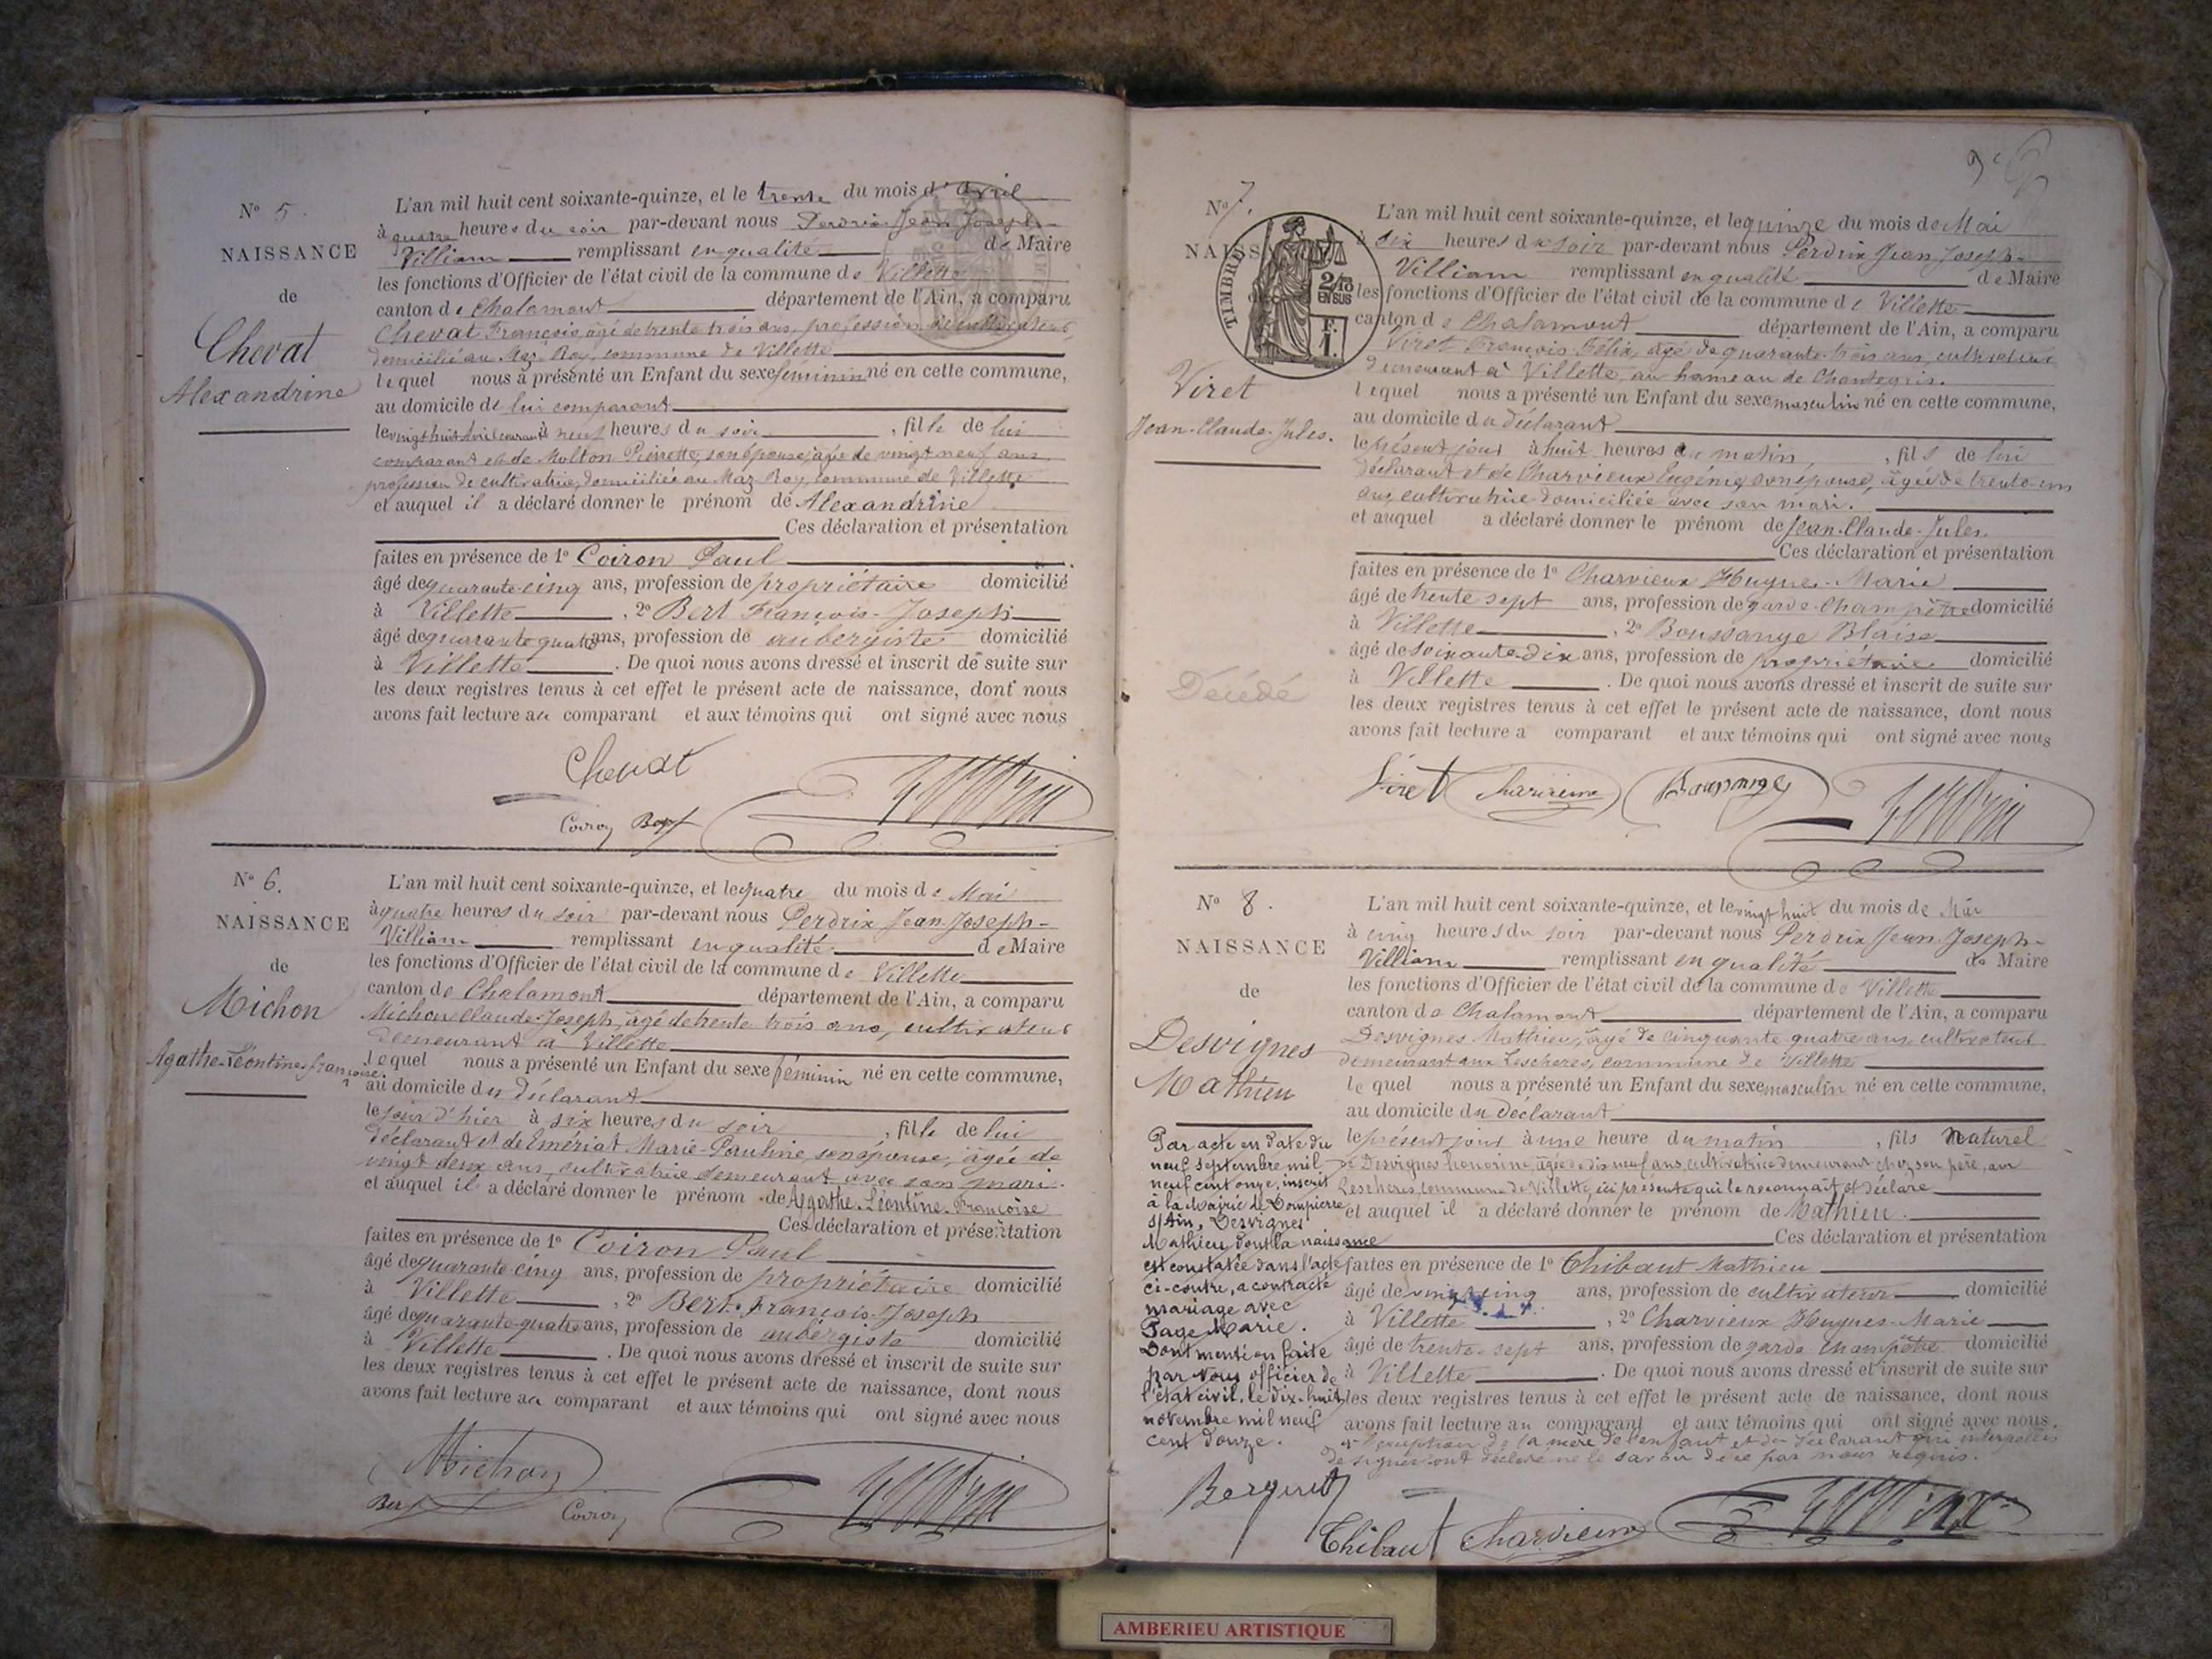 N° 5.
NAISSANCE
de
Chevat
Alexandrine
L'an mil huit cent soixante-quinze, et le trente du mois d'avril
à quatre heures du soir par-devant nous Perdrix Jean Joseph-
Villiam remplissant en qualité de Maire
les fonctions d'Officier de l'état civil de la commune de Villette
canton de Chalamont département de l'Ain, a comparu
Chevat François, âgé de trente trois ans, profession de cultivateur
domicilié au Maz-Roy, commune de Villette
lequel nous a présenté un Enfant du sexe féminin né en cette commune,
au domicile de lui comparant
le vingt huit avril courant à neuf heures du soir, fille de lui
comparant et de Molton Pierrette, son épouse, âgée de vingt neuf ans,
profession de cultivatrice, domiciliée au Maz-Roy, commune de Villette
et auquel il a déclaré donner le prénom de Alexandrine
Ces déclaration et présentation
faites en présence de 1° Coiron Paul
âgé de quarante-cinq ans, profession de propriétaire domicilié
à Villette, 2° Bert François-Joseph
âgé de quarante quatre ans, profession de aubergiste domicilié
à Villette. De quoi nous avons dressé et inscrit de suite sur
les deux registres tenus à cet effet le présent acte de naissance, dont nous
avons fait lecture au comparant et aux témoins qui ont signé avec nous
Chevat
Coiron Bert Perdrix
N° 6.
NAISSANCE
de
Michon
Agathe-Léontine-Françoise.
L'an mil huit cent soixante-quinze, et le quatre du mois de Mai
à quatre heures du soir par-devant nous Perdrix Jean Joseph-
Villiam remplissant en qualité de Maire
les fonctions d'Officier de l'état civil de la commune de Villette
canton de Chalamont département de l'Ain, a comparu
Michon Claude-Joseph, âgé de trente trois ans, cultivateur
demeurant à Villette
lequel nous a présenté un Enfant du sexe féminin né en cette commune,
au domicile du déclarant
le jour d'hier à six heures du soir, fille de lui
déclarant et de Emériat Marie-Pauline, son épouse, âgée de
vingt deux ans, cultivatrice demeurant avec son mari.
et auquel il a déclaré donner le prénom de Agathe-Léontine-Françoise
Ces déclaration et présentation
faites en présence de 1° Coiron Paul
âgé de quarante-cinq ans, profession de propriétaire domicilié
à Villette, 2° Bert-François-Joseph
âgé de quarante-quatre ans, profession de aubergiste domicilié
à Villette. De quoi nous avons dressé et inscrit de suite sur
les deux registres tenus à cet effet le présent acte de naissance, dont nous
avons fait lecture au comparant et aux témoins qui ont signé avec nous
Michon
Bert Coiron Perdrix
N° 7.
NAISSA
TIMBRE
2/10
EN SUS
F.
1.
Viret
Jean-Claude-Jules.
Décédé
L'an mil huit cent soixante-quinze, et le quinze du mois de Mai
à six heures du soir par-devant nous Perdrix Jean Joseph-
Villiam remplissant en qualité de Maire
les fonctions d'Officier de l'état civil de la commune de Villette
canton de Chalamont département de l'Ain, a comparu
Viret François-Félix, âgé de quarante-trois ans, cultivateur
demeurant à Villette, au hameau de Chantegris.
lequel nous a présenté un Enfant du sexe masculin né en cette commune,
au domicile du déclarant
le présent jour à huit heures du matin, fils de lui
déclarant et de Charvieux Eugénie, son épouse, âgée de trente-un
ans, cultivatrice domiciliée avec son mari.
et auquel a déclaré donner le prénom de Jean-Claude-Jules.
Ces déclaration et présentation
faites en présence de 1° Charvieux Hugues-Marie
âgé de trente sept ans, profession de garde-champêtre domicilié
à Villette, 2° Boussange Blaise
âgé de soixante-dix ans, profession de propriétaire domicilié
à Villette. De quoi nous avons dressé et inscrit de suite sur
les deux registres tenus à cet effet le présent acte de naissance, dont nous
avons fait lecture a comparant et aux témoins qui ont signé avec nous
Viret Charvieux Boussange Perdrix
N° 8.
NAISSANCE
de
Desvignes
Mathieu
Par acte en date du
neuf septembre mil
neuf cent onze, inscrit
à la Mairie de Dompierre
s/Ain, Desvignes
Mathieu dont la naissance
est constatée dans l'acte
ci-contre, a contracté
mariage avec
Page Marie.
Dont mention faite
par Nous officier de
l'état civil, le dix-huit
novembre mil neuf
cent douze.
L'an mil huit cent soixante-quinze, et le vingt huit du mois de Mai
à cinq heures du soir par-devant nous Perdrix Jean Joseph-
Villiam remplissant en qualité de Maire
les fonctions d'Officier de l'état civil de la commune de Villette
canton de Chalamont département de l'Ain, a comparu
Desvignes Mathieu, âgé de cinquante quatre ans cultivateur
demeurant aux Lescheres, commune de Villette
lequel nous a présenté un Enfant du sexe masculin né en cette commune,
au domicile du déclarant
le présent jour à une heure du matin, fils Naturel
de Desvignes Honorine, âgée de dix neuf ans, cultivatrice demeurant chez son père, aux
Lescheres, commune de Villette, ici présente qui le reconnaît et déclare
et auquel il a déclaré donner le prénom de Mathieu.
Ces déclaration et présentation
faites en présence de 1° Thibaut Mathieu
âgé de vingt cinq ans, profession de cultivateur domicilié
à Villette, 2° Charvieux Hugues-Marie
âgé de trente-sept ans, profession de garde champêtre domicilié
à Villette. De quoi nous avons dressé et inscrit de suite sur
les deux registres tenus à cet effet le présent acte de naissance, dont nous
avons fait lecture au comparant et aux témoins qui ont signé avec nous.
à l'exception de la mère de l'enfant et du déclarant qui interpellés
de signer ont déclaré ne le savoir de ce par nous requis.
Thibaut Charvieux Perdrix
AMBERIEU ARTISTIQUE